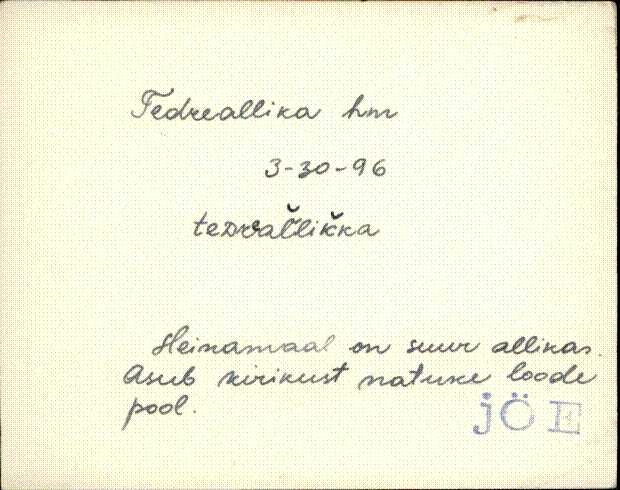 Tedreallika hm
3-30-96
teDral̆lik̆ka
Heinamaal on suur allikas.
Asub kirikust natuke loode
pool.
JÕE